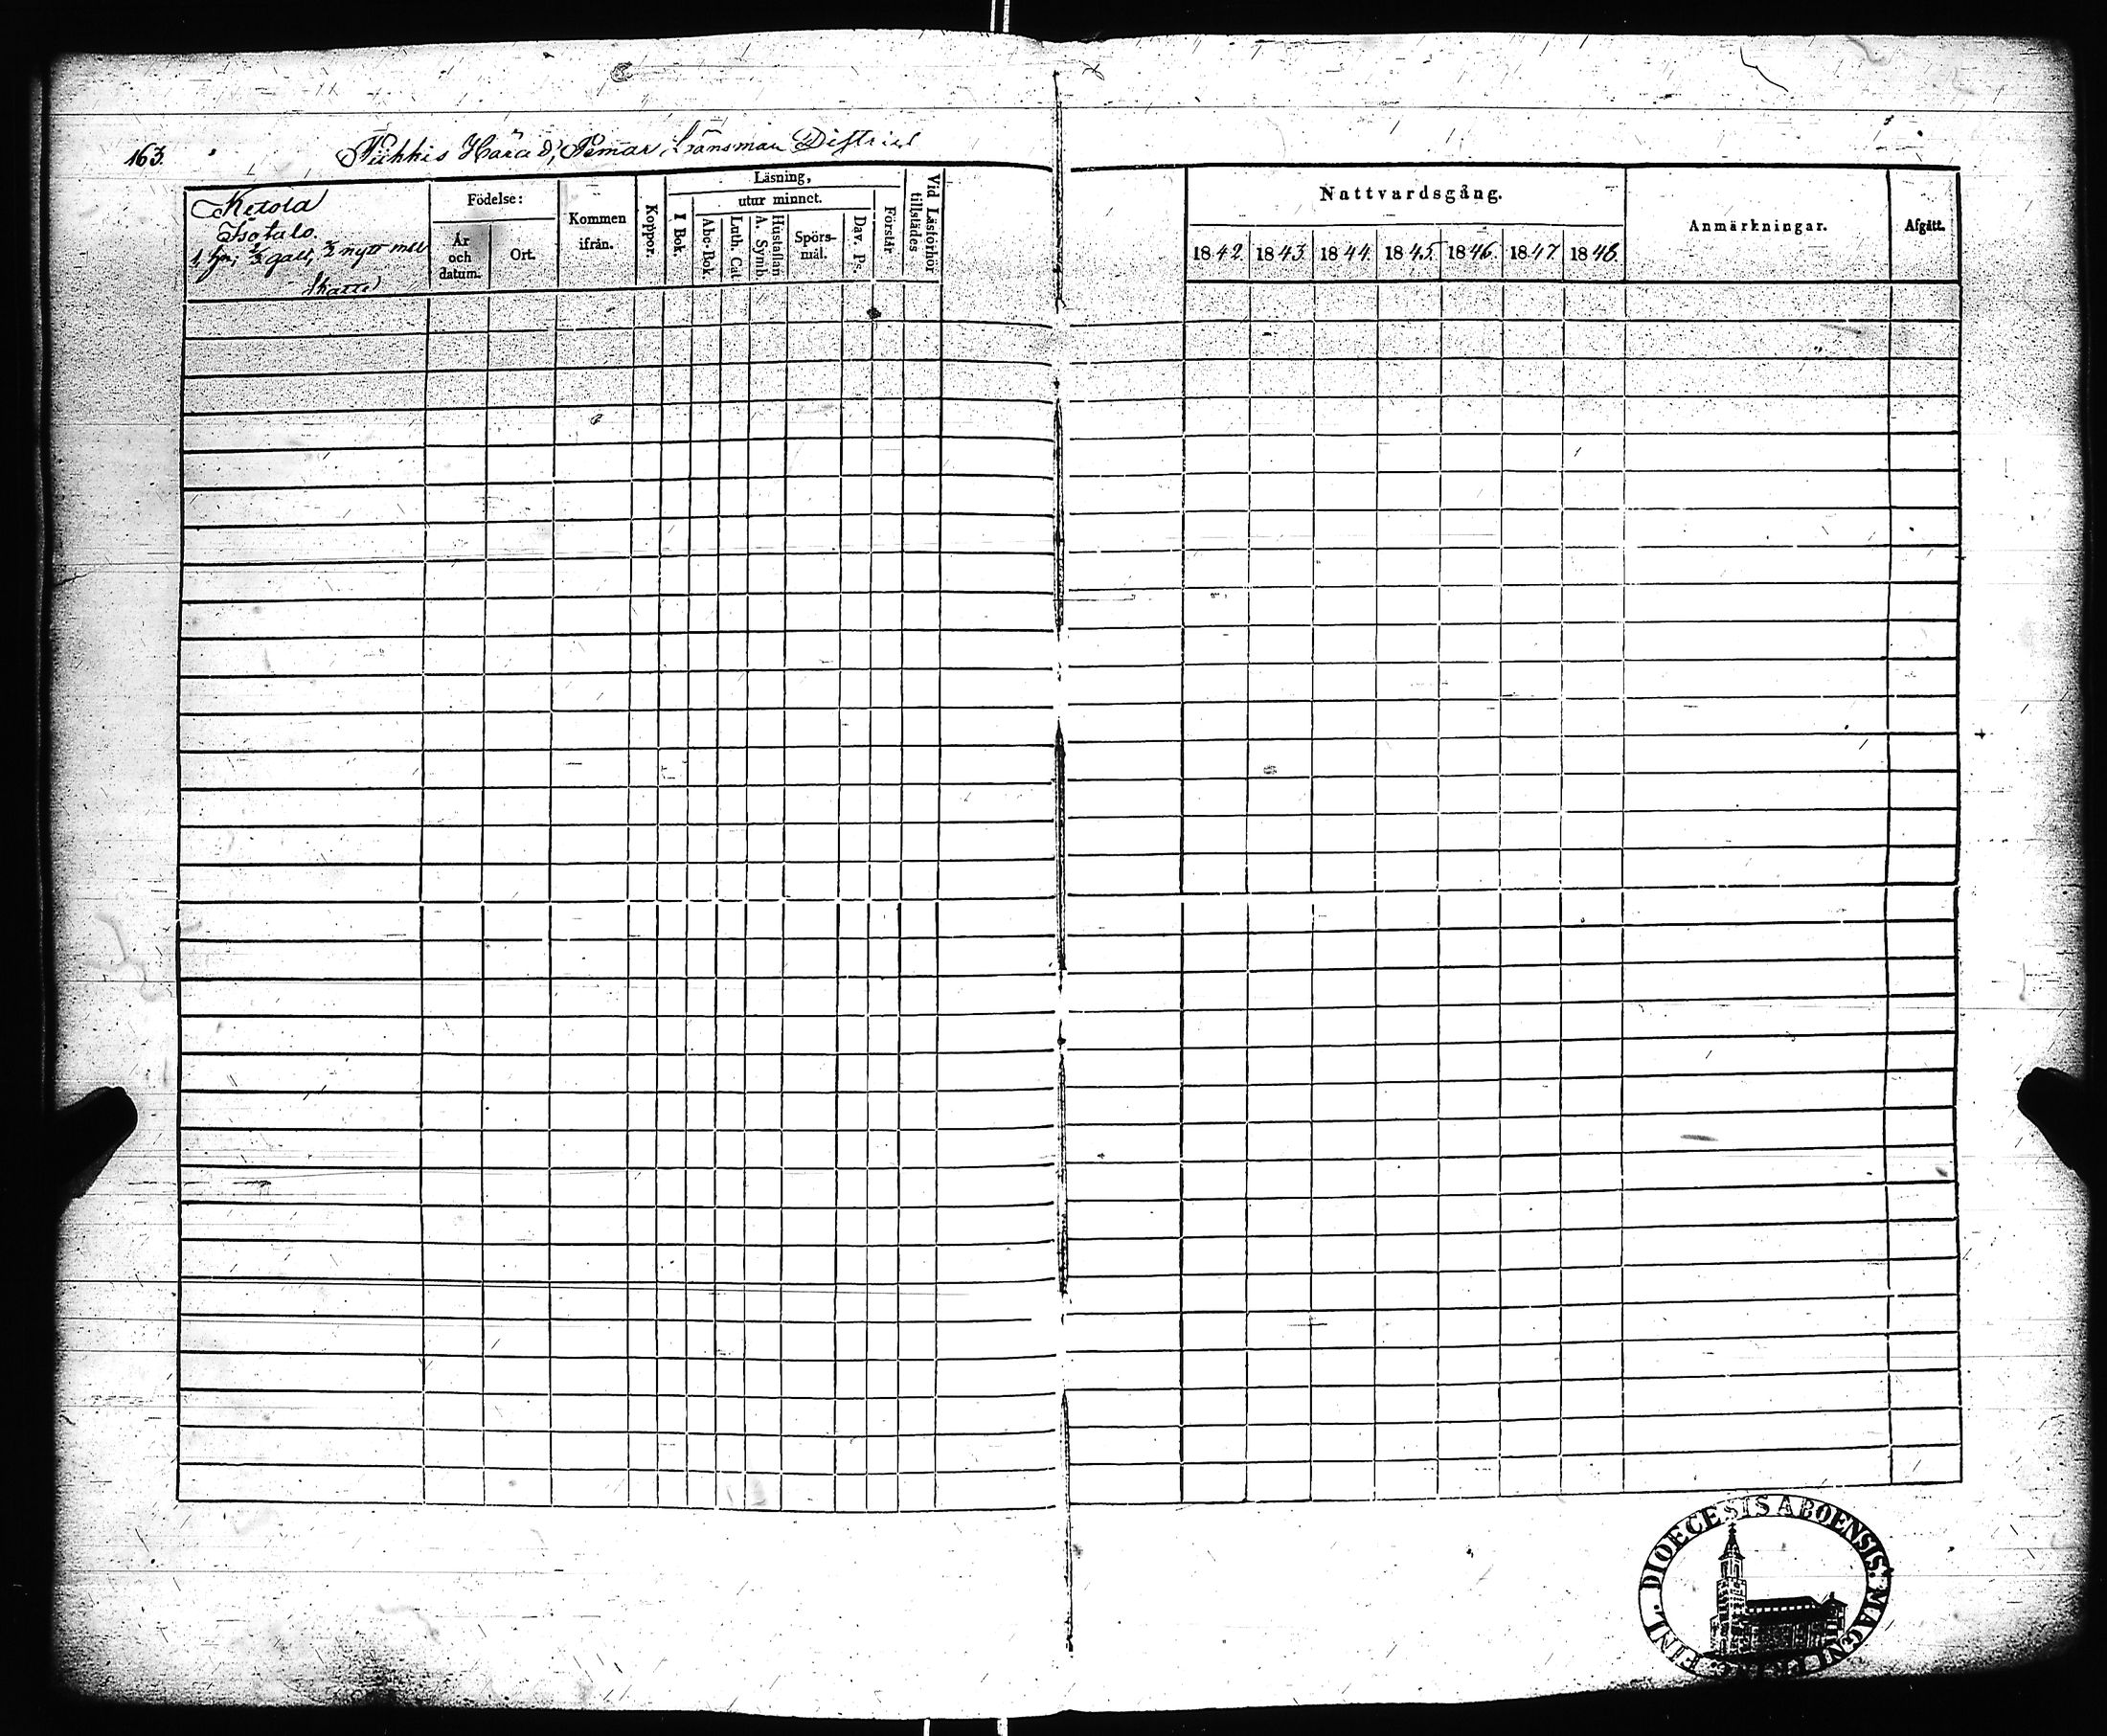 163.
Pikkis Härad, Pemar Länsman District
Ketola
Isotalo
1 hn; 1/2 gall, 1/2 nytt mtl
Skatte
Födelse:
År och datum.
Ort.
Kommen ifrån.
Koppor.
Läsning,
I Bok.
utur minnet.
Abc-Bok
Luth. Cat
A. Symb.
Hustaflan
Spörs-
mål.
Dav. Ps.
Förstår
Vid Läsförhör tillstädes
Nattvardsgång.
1842. 1843. 1844. 1845. 1846. 1847. 1848.
Anmärkningar.
Afgått.
DIOECESIS ABOENSIS. MAGNI FINL.